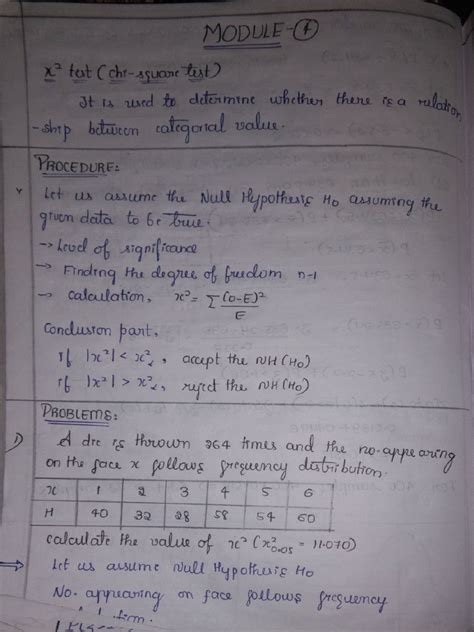 MODULE-④
x² test (chi-square test)
It is used to determine whether there is a relation
-ship between categorial value.
PROCEDURE:
Let us assume the Null Hypothesis H₀ assuming the
given data to be true.
→ Level of significance
→ Finding the degree of freedom n-1
→ calculation, x² = Σ (O-E)²/E
Conclusion part,
if |x²| < x²α, accept the NH (H₀)
if |x²| > x²α, reject the NH (H₀)
PROBLEMS:
1) A die is thrown 264 times and the no. appearing
on the face x follows frequency distribution.
x 1 2 3 4 5 6
H 40 32 28 58 54 60
calculate the value of x² (x²0.05 = 11.070)
⇒ Let us assume Null Hypothesis H₀
No. appearing on face follows frequency